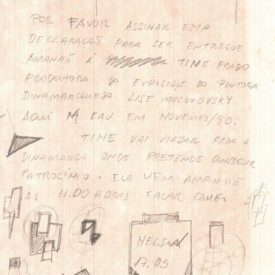 POR FAVOR ASSINAR ESTA
DECLARAÇÃO PARA SER ENTREGUE
AMANHÃ À TIME PRADO
PRODUTORA DA EXPOSIÇÃO DO PINTORA
DINAMARQUESA LISE MALINOVSKY
AQUI NA EAV EM NOVEMRO/90.
TIME VAI VIAJAR PARA A
DINAMARCA ONDE PRETENDE CONSEGUIR
PATROCÍNIO. ELA VEM AMANHÃ
AS 11.00 HORAS FALAR COMIGO
NELSON
17.05